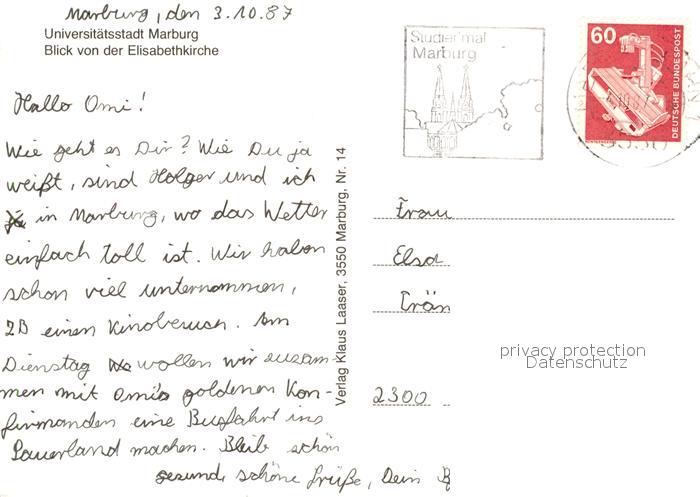 Marburg, den 3.10.87
Universitätsstadt Marburg
Blick von der Elisabethkirche
Hallo Omi!
Wie geht es Dir? Wie Du ja
weißt, sind Holger und ich
in Marburg, wo das Wetter
einfach toll ist. Wir haben
schon viel unternommen,
zB einen Kinobesuch. Am
Dienstag wollen wir zusam-
men mit Omi's goldenen Kon-
firmanden eine Busfahrt ins
Sauerland machen. Bleib schön
gesund, schöne Grüße, Dein
Verlag Klaus Laaser, 3550 Marburg, Nr. 14
Studier' mal
Marburg
60
DEUTSCHE BUNDESPOST
Frau
Elsa
Trän
2300
privacy protection
Datenschutz